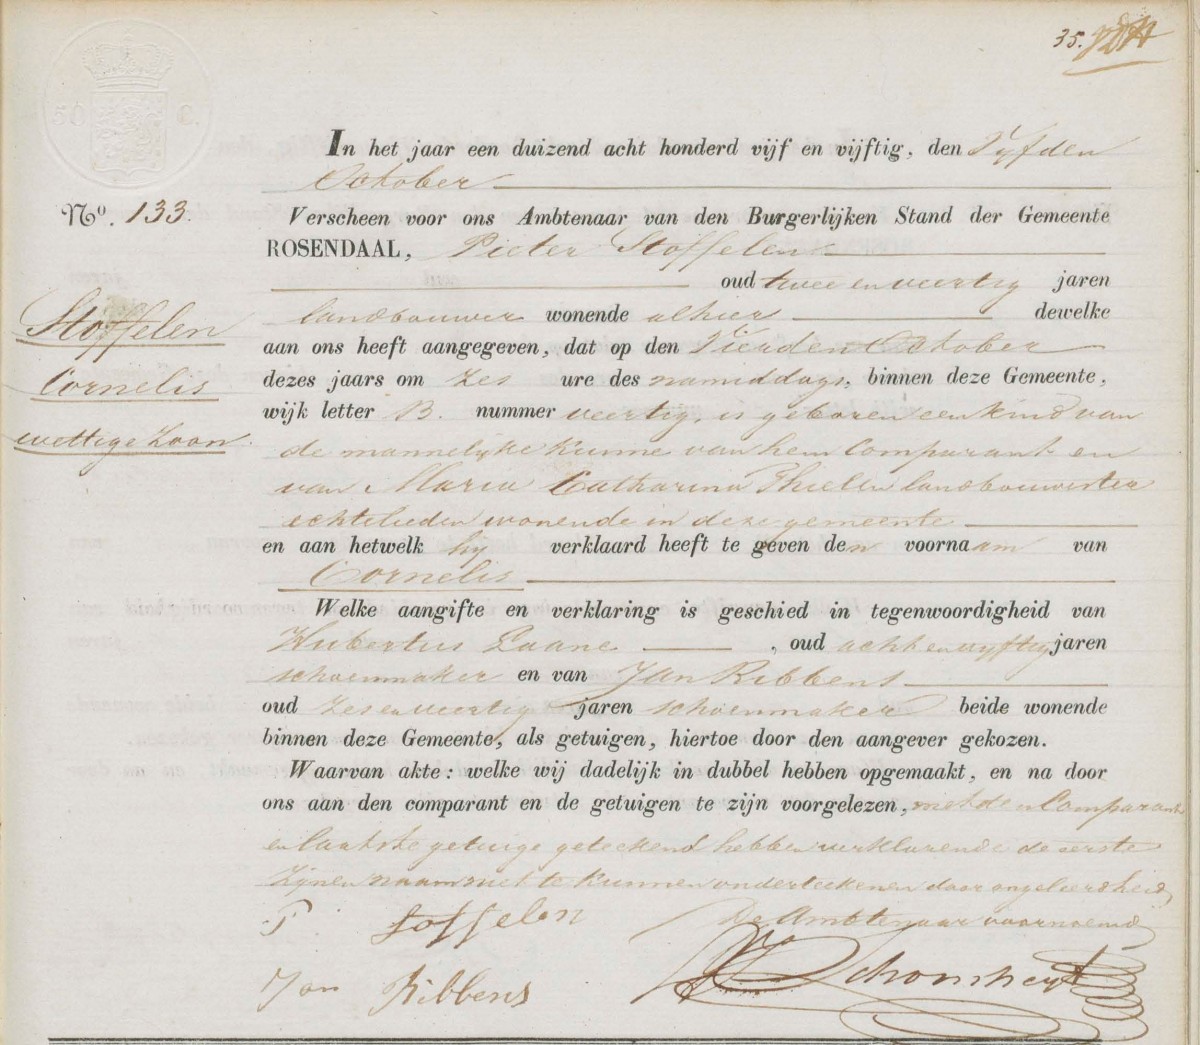 35.
50 C.
In het jaar een duizend acht honderd vijf en vijftig, den Vyfden
October
No. 133.
Verscheen voor ons Ambtenaar van den Burgerlijken Stand der Gemeente
ROSENDAAL, Pieter Stoffelen
oud twee en veertig jaren
Stoffelen
Cornelis
wettige Zoon
landbouwer wonende alhier dewelke
aan ons heeft aangegeven, dat op den Vierden October
dezes jaars om zes ure des namiddags, binnen deze Gemeente,
wijk letter B. nummer veertig, is geboren een kind van
de mannelyke kunne van hem Comparant en
van Maria Catharina Thielen landbouwerster
echtelieden wonende in deze gemeente
en aan hetwelk hy verklaard heeft te geven den voornaam van
Cornelis
Welke aangifte en verklaring is geschied in tegenwoordigheid van
Hubertus Laane, oud acht en vyftig jaren
schoenmaker en van Jan Ribbens
oud zes en veertig jaren schoenmaker beide wonende
binnen deze Gemeente, als getuigen, hiertoe door den aangever gekozen.
Waarvan akte: welke wij dadelijk in dubbel hebben opgemaakt, en na door
ons aan den comparant en de getuigen te zijn voorgelezen, met den Comparant
en laatste getuige geteekend hebben verklarende de eerste
zynen naam niet te kunnen onderteekenen door ongeleerdheid
P. Stoffelen De Ambtenaar voornoemd
Jan Ribbens